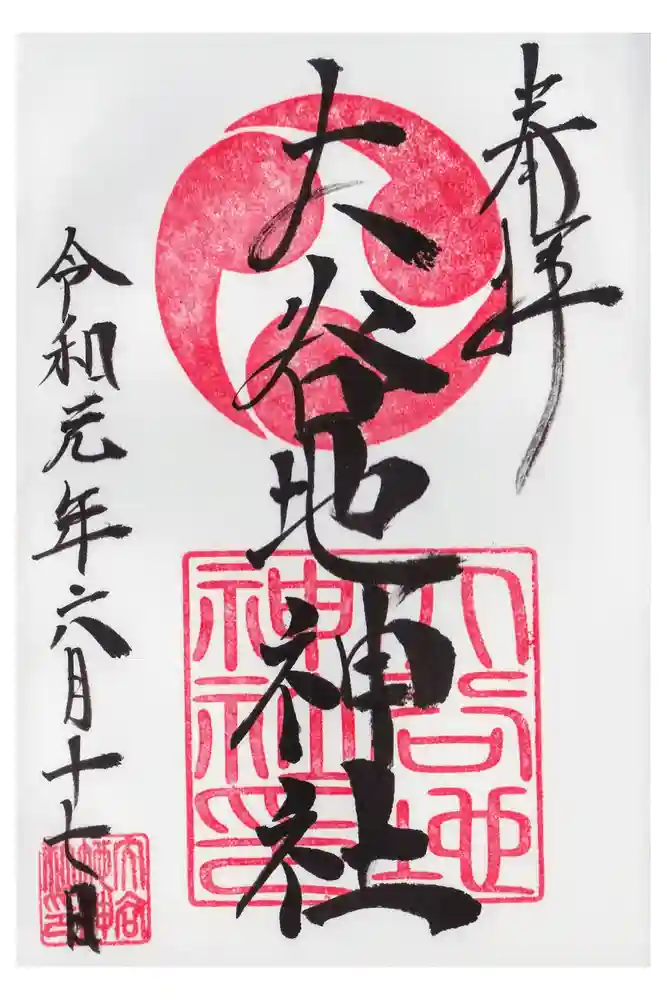 奉拝
大谷地神社
令和元年六月十七日
大谷地
神社印